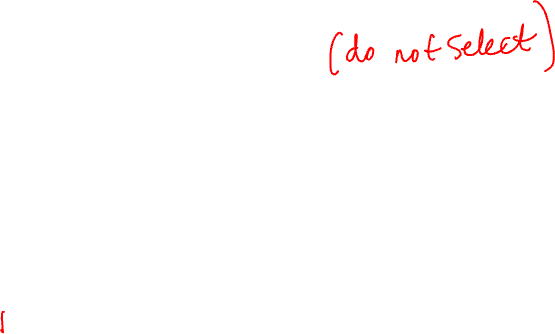 (do not select)